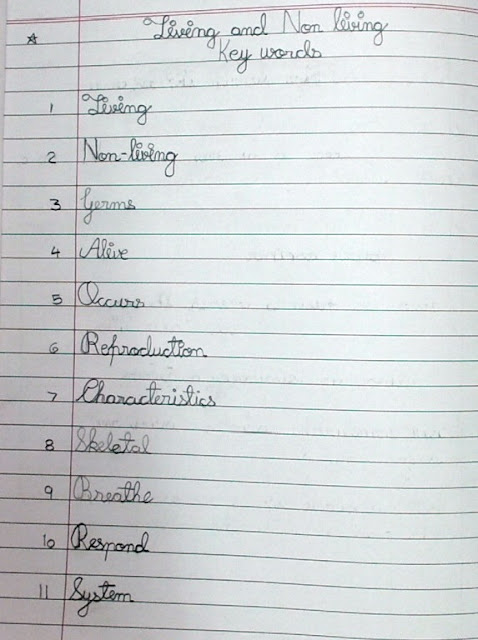 * Living and Non living
Key words
1 Living
2 Non-living
3 Germs
4 Alive
5 Occurs
6 Reproduction
7 Characteristics
8 Skeletal
9 Breathe
10 Respond
11 System